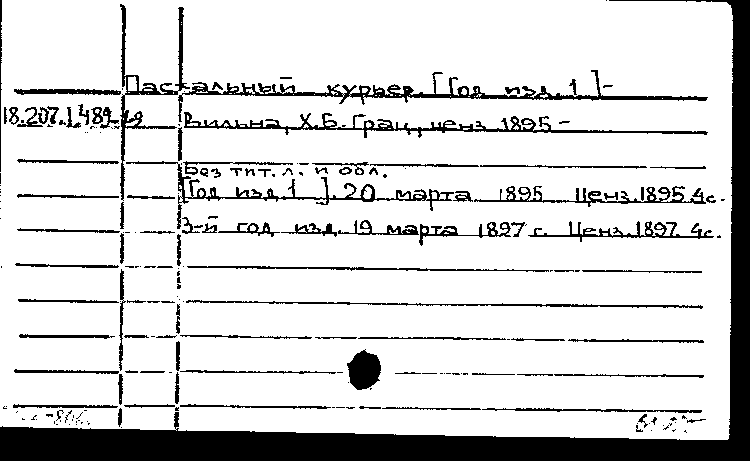 Пасхальный курьер. [Год изд. 1 ]-
18.207.1.489 Вильна, Х.Б. Грац, ценз. 1895 -
Без тит. л. и обл.
[Год изд. 1 ]. 20 марта 1895 Ценз. 1895. 4с.
3-й год изд. 19 марта 1897 г. Ценз. 1897. 4с.